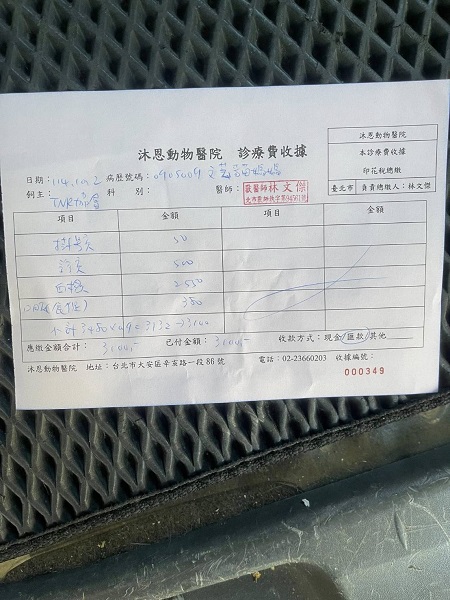 沐恩動物醫院 診療費收據
沐恩動物醫院
本診療費收據
印花稅總繳
臺北市 負責總繳人：林文傑
日期：114.10.2 病歷號碼：0905009
飼主：TNR協會 科別： 醫師：獸醫師林文傑
項目 金額 項目 金額
掛號 50
診 500
血檢 2550
380
小計 3480x0.9=3132→3100
應繳金額合計：3100- 已付金額：3100- 收款方式：現金/匯款/其他
沐恩動物醫院 地址：台北市大安區辛亥路一段86號 電話：02-23660203 收據編號：
000349